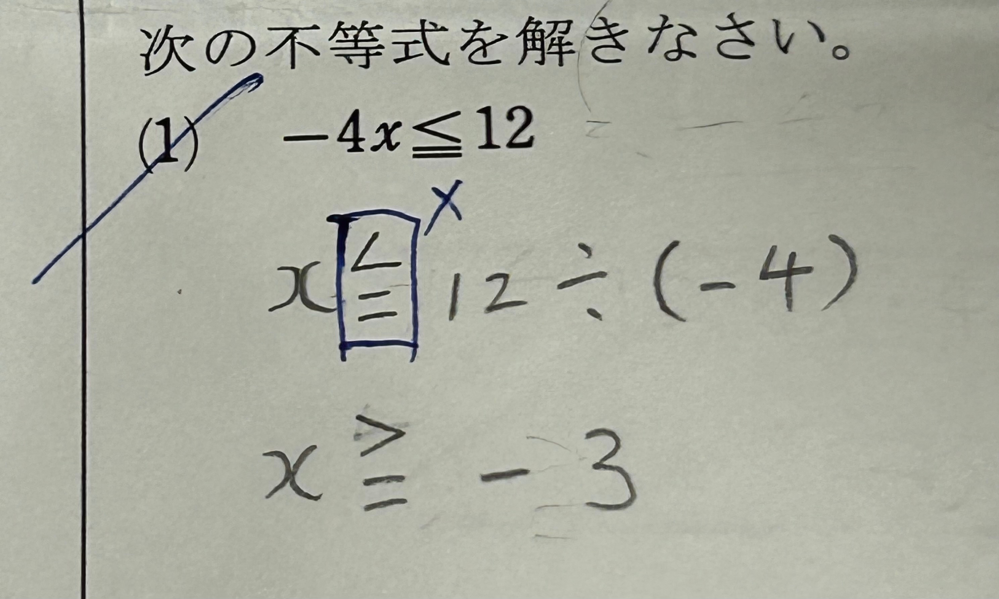 次の不等式を解きなさい。
(1) −4x≦12
x≦12÷(−4)
x≧−3